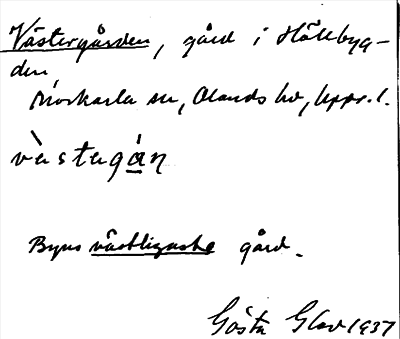 Västergården, gård i Hållbyg-
den,
Morkarla sn, Olands hd, Upps. l.
vàstagá̱n
Byns västligaste gård.
Gösta Glav 1937